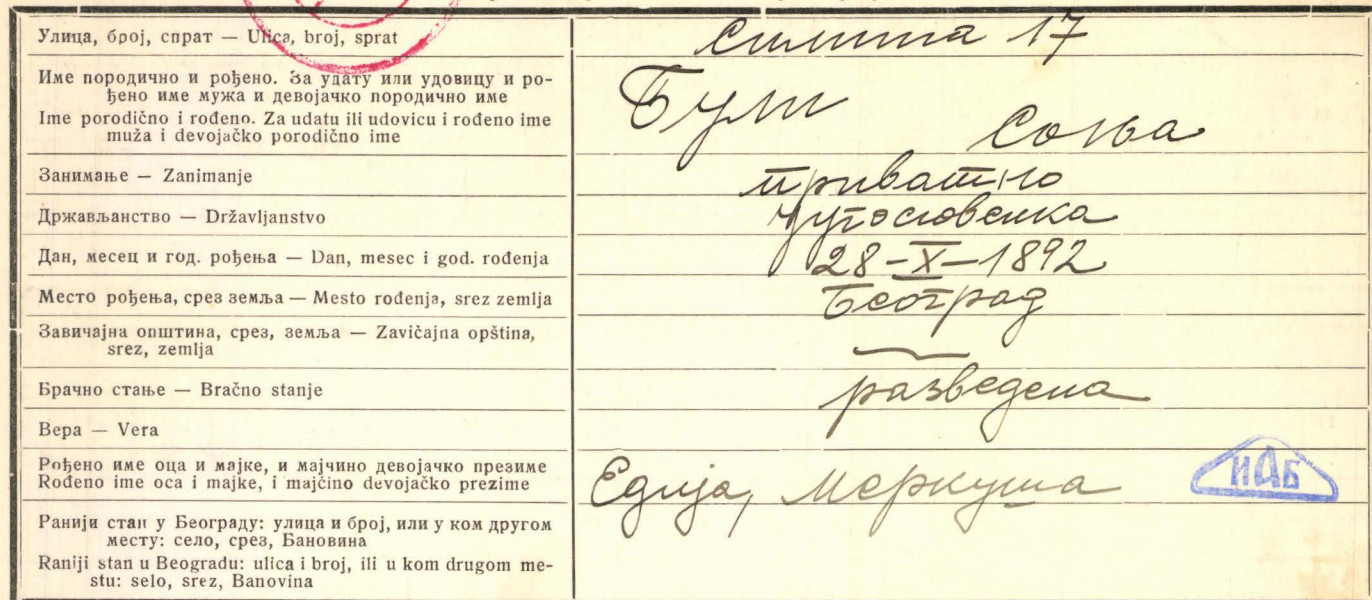 Улица, број, спрат — Ulica, broj, sprat
Симина 17
Име породично и рођено. За удату или удовицу и ро-
ђено име мужа и девојачко породично име
Ime porodično i rođeno. Za udatu ili udovicu i rođeno ime
muža i devojačko porodično ime
Були
Соња
Занимање — Zanimanje
приватно
Држављанство — Državljanstvo
Југословенка
Дан, месец и год. рођења — Dan, mesec i god. rođenja
28-X-1892
Место рођења, срез земља — Mesto rođenja, srez zemlja
Београд
Завичајна општина, срез, земља — Zavičajna opština,
srez, zemlja
Брачно стање — Bračno stanje
разведена
Вера — Vera
Рођено име оца и мајке, и мајчино девојачко презиме
Rođeno ime oca i majke, i majčino devojačko prezime
Едија, Меркуша
ИАБ
Ранији стан у Београду: улица и број, или у ком другом
месту: село, срез, Бановина
Raniji stan u Beogradu: ulica i broj, ili u kom drugom me-
stu: selo, srez, Banovina